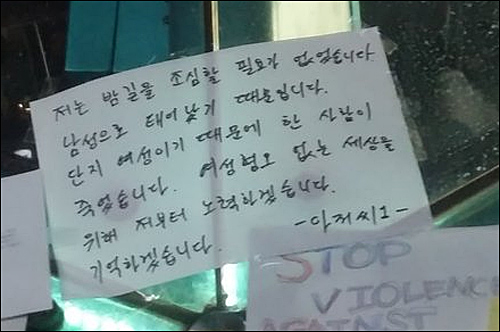 저는 밤길을 조심할 필요가 없었습니다
남성으로 태어났기 때문입니다.
단지 여성이기 때문에 한 사람이
죽었습니다. 여성혐오 없는 세상을
위해 저부터 노력하겠습니다.
기억하겠습니다.
-아저씨1-
STOP
VIOLENCE
AGAINST